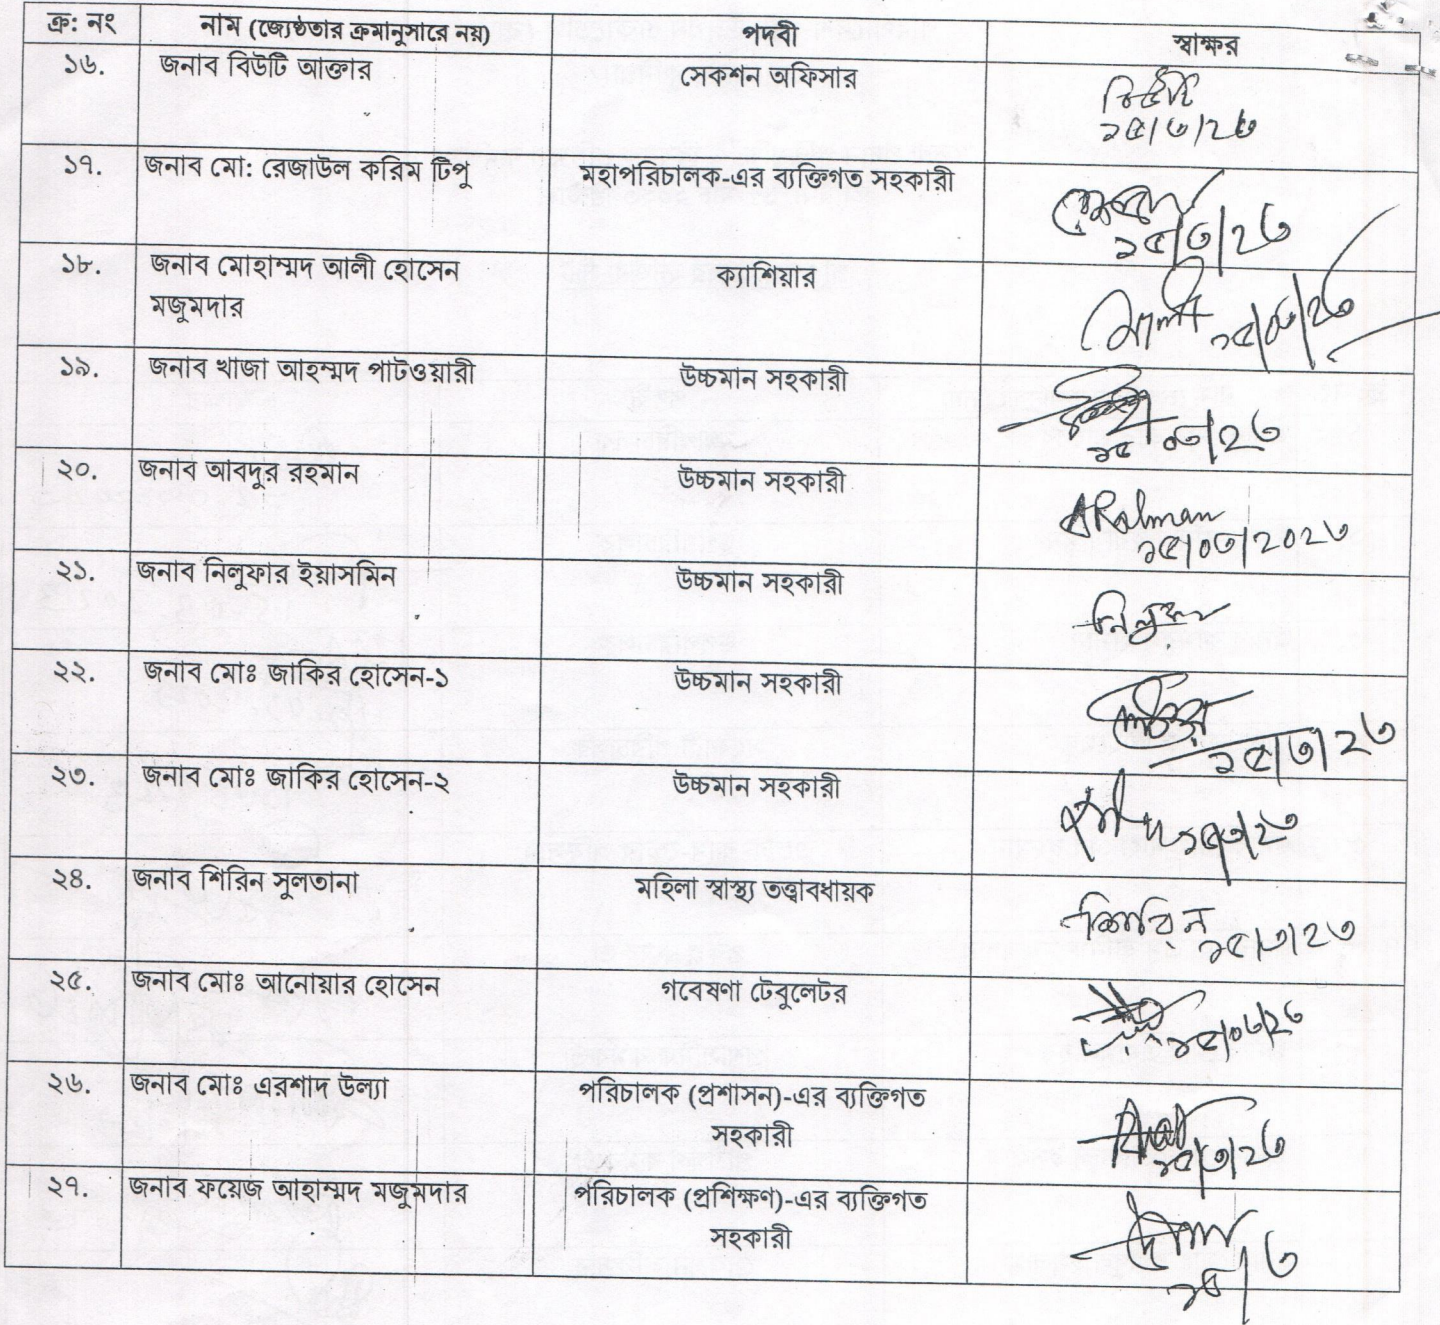 ক্র: নং নাম (জ্যেষ্ঠতার ক্রমানুসারে নয়) পদবী স্বাক্ষর
১৬. জনাব বিউটি আক্তার সেকশন অফিসার
১৫/৩/২৩
১৭. জনাব মো: রেজাউল করিম টিপু মহাপরিচালক-এর ব্যক্তিগত সহকারী
১৫/৩/২৩
১৮. জনাব মোহাম্মদ আলী হোসেন ক্যাশিয়ার
মজুমদার
১৫/০৩/২৩
১৯. জনাব খাজা আহম্মদ পাটওয়ারী উচ্চমান সহকারী
১৫/০৩/২৩
২০. জনাব আবদুর রহমান উচ্চমান সহকারী
ARahman
১৫/০৩/২০২৩
২১. জনাব নিলুফার ইয়াসমিন উচ্চমান সহকারী
২২. জনাব মোঃ জাকির হোসেন-১ উচ্চমান সহকারী
১৫/৩/২৩
২৩. জনাব মোঃ জাকির হোসেন-২ উচ্চমান সহকারী
১৫/৩/২৩
২৪. জনাব শিরিন সুলতানা মহিলা স্বাস্থ্য তত্ত্বাবধায়ক
শিরিন
১৫/৩/২৩
২৫. জনাব মোঃ আনোয়ার হোসেন গবেষণা টেবুলেটর
১৫/০৩/২৩
২৬. জনাব মোঃ এরশাদ উল্যা পরিচালক (প্রশাসন)-এর ব্যক্তিগত
সহকারী
১৫/৩/২৩
২৭. জনাব ফয়েজ আহাম্মদ মজুমদার পরিচালক (প্রশিক্ষণ)-এর ব্যক্তিগত
সহকারী
১৫/৩